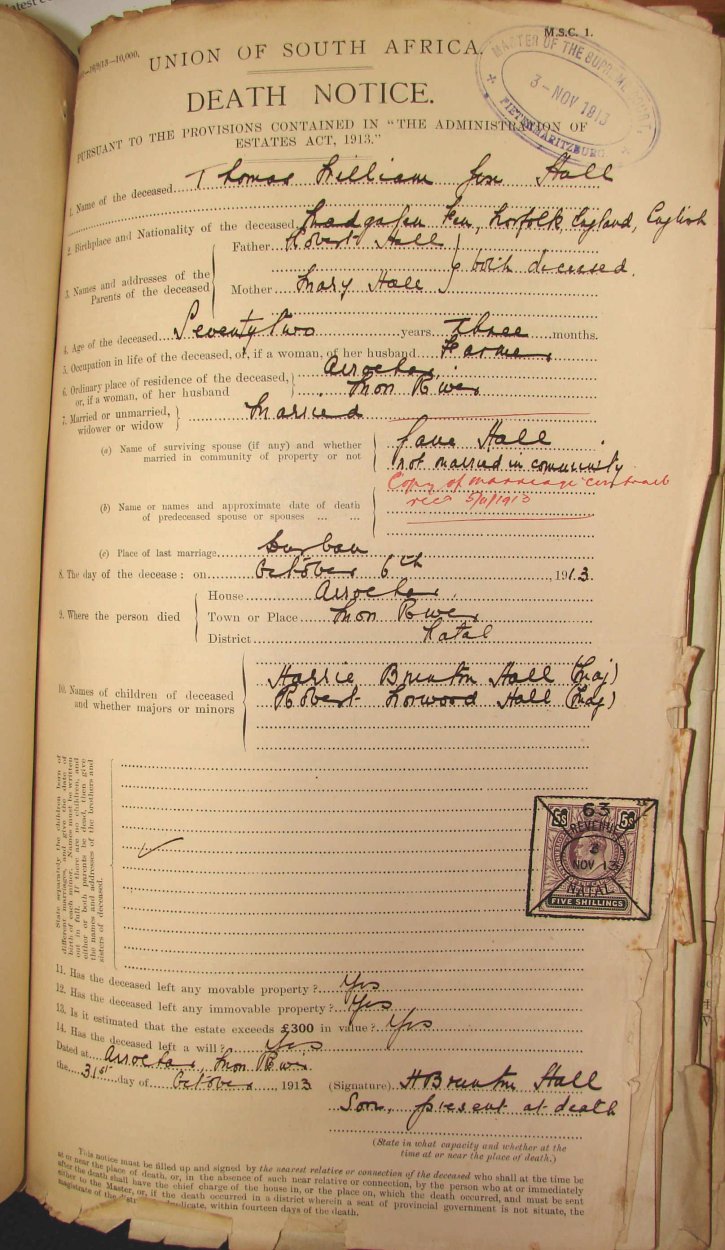 M.S.C. 1.
UNION OF SOUTH AFRICA.
MASTER OF THE SUPREME COURT
3 - NOV 1913
PIETERMARITZBURG
DEATH NOTICE.
PURSUANT TO THE PROVISIONS CONTAINED IN "THE ADMINISTRATION OF
ESTATES ACT, 1913."
1. Name of the deceased Thomas William Hall
2. Birthplace and Nationality of the deceased Fen, Norfolk England, English
3. Names and addresses of the Parents of the deceased
Father Robert Hall
both deceased.
Mother Mary Hall
4. Age of the deceased Seventy two years Three months.
5. Occupation in life of the deceased, or, if a woman, of her husband Farmer
6. Ordinary place of residence of the deceased, Arrochar,
or, if a woman, of her husband Mooi River
7. Married or unmarried, widower or widow Married
(a) Name of surviving spouse (if any) and whether Jane Hall
married in community of property or not not married in community
Copy of marriage contract
rec'd 5/11/1913
(b) Name or names and approximate date of death
of predeceased spouse or spouses ... ...
(c) Place of last marriage Durban
8. The day of the decease: on October 6th, 1913.
9. Where the person died
House Arrochar,
Town or Place Mooi River
District Natal
10. Names of children of deceased and whether majors or minors
Harrie Brunton Hall (Maj)
Robert Norwood Hall (Maj)
State separately the children born of
different marriages, and give the date of
birth of each minor. Names must be written
out in full. If there are no children, and
either or both parents be dead, then give
the names and addresses of the brothers and
sisters of deceased.
63
5s 5s
REVENUE
NOV 13
NATAL
FIVE SHILLINGS
11. Has the deceased left any movable property? Yes
12. Has the deceased left any immovable property? Yes
13. Is it estimated that the estate exceeds £300 in value? Yes
14. Has the deceased left a will? Yes
Dated at Arrochar, Mooi River
the 31st day of October, 1913
(Signature) HBrunton Hall
Son, present at death
(State in what capacity and whether at the
time at or near the place of death.)
This notice must be filled up and signed by the nearest relative or connection of the deceased who shall at the time be
at or near the place of death, or, in the absence of such near relative or connection, by the person who at or immediately
after the death shall have the chief charge of the house in, or the place on, which the death occurred, and must be sent
either to the Master, or, if the death occurred in a district wherein a seat of provincial government is not situate, the
magistrate of the district, within fourteen days of the death.